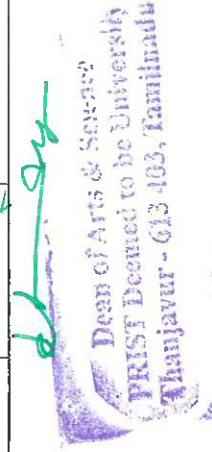 Dean of Arts & Science
PRIST Deemed to be University
Thanjavur - 613 403, Tamilnadu